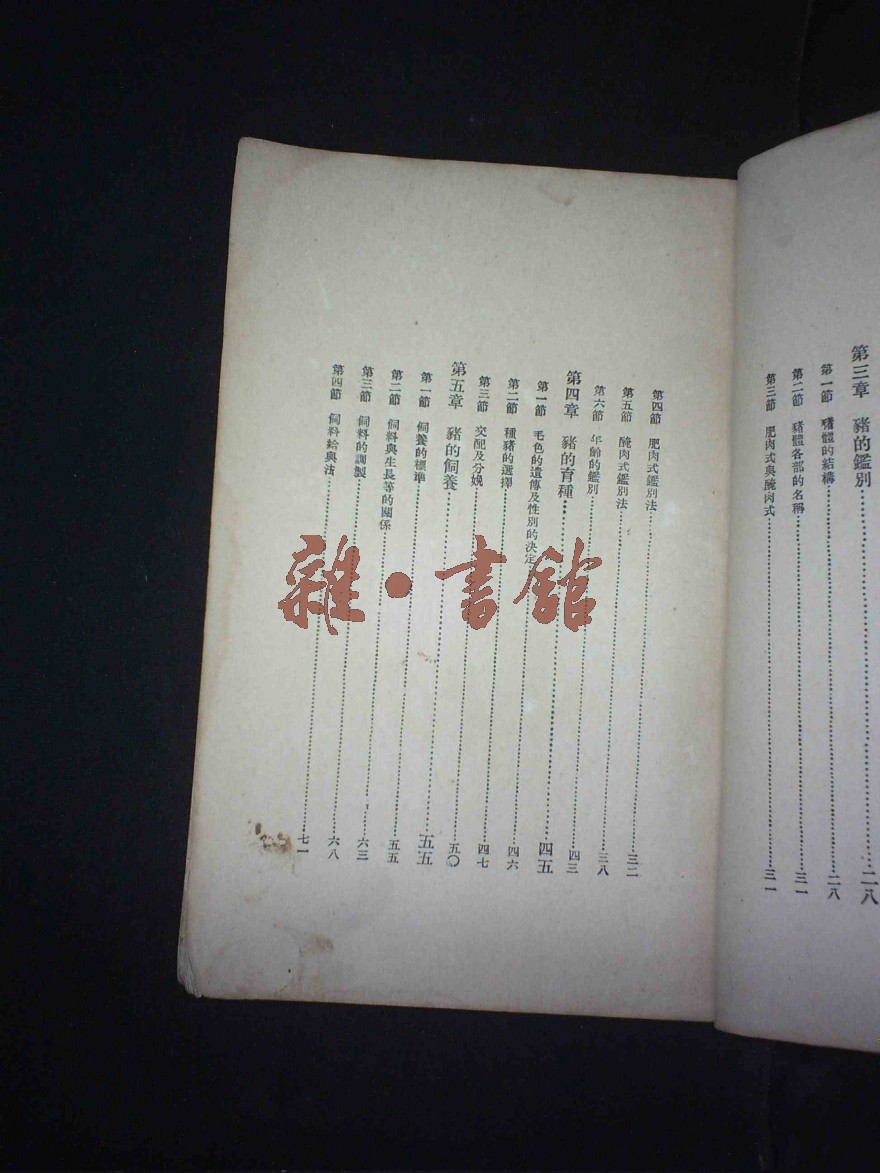 第三章　豬的鑑別……二八
第一節　豬體的結構……二八
第二節　豬體各部的名稱……三一
第三節　肥肉式與醃肉式……三一
第四節　肥肉式鑑別法……三二
第五節　醃肉式鑑別法……三八
第六節　年齡的鑑別……四三
第四章　豬的育種……四五
第一節　毛色的遺傳及性別的決定……四六
第二節　種豬的選擇……四七
第三節　交配及分娩……五〇
第五章　豬的飼養……五五
第一節　飼養的標準……五五
第二節　飼料與生長等的關係……六三
第三節　飼料的調製……六八
第四節　飼料給與法……七一
雜·書館